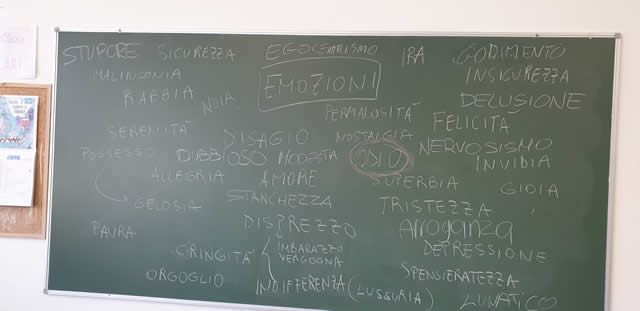 STUPORE SICUREZZA EGOCENTRISMO IRA GODIMENTO
MALINSONIA EMOZIONI INSICUREZZA
RABBIA NOIA DELUSIONE
PERMALOSITÀ FELICITÀ
SERENITÀ DISAGIO NOSTALGIA NERVOSISMO
POSSESSO DUBBIOSO MODESTA ODIO INVIDIA
ALLEGRIA AMORE SUPERBIA GIOIA
GELOSIA STANCHEZZA TRISTEZZA
PAURA DISPREZZO Arroganza
CRINGITÀ IMBARAZZO DEPRESSIONE
VERGOGNA
ORGOGLIO INDIFFERENZA (LUSSURIA) SPENSIERATEZZA
LUNATICO